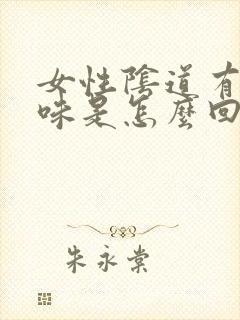 女性陰道有
味是怎麼回
朱永棠